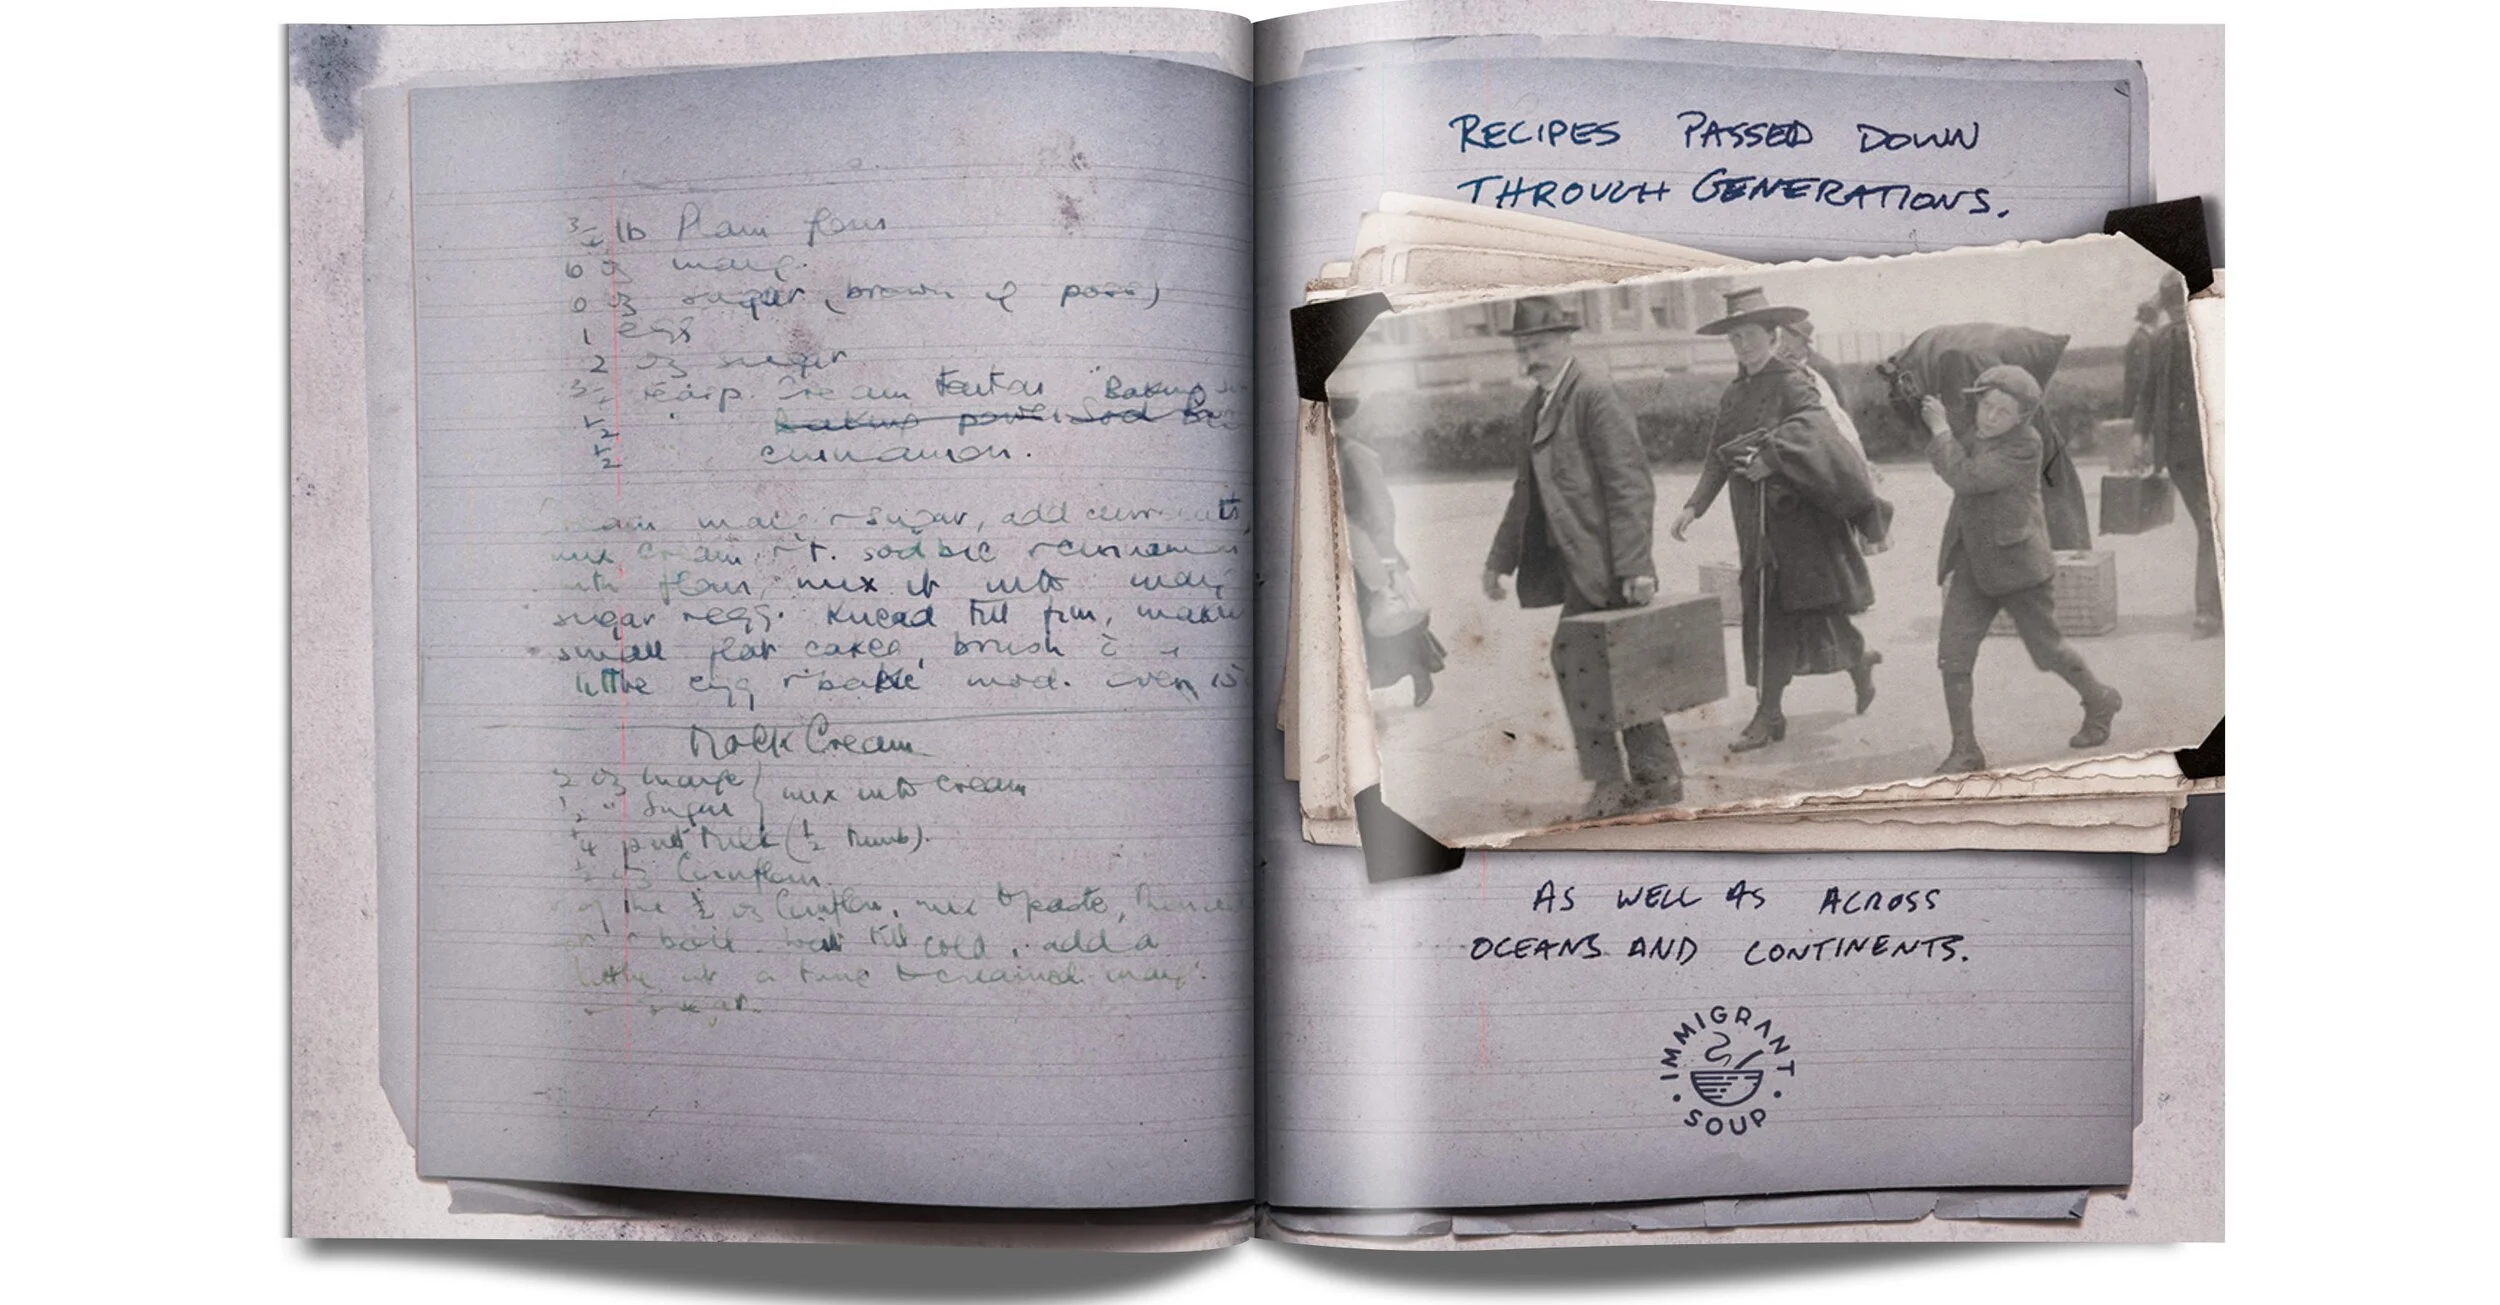 3/4 lb Plain flour
6 oz marg.
oz sugar (brown if poss)
1 egg
2 oz sugar
teasp. Cream Tartar Baking
1/2 " Baking powder Sod
1/2 cinnamon.
marg r sugar, add currants,
mix cream r T. sod bic r cinnamon
with flour, mix it into marg
sugar r egg. Knead till firm, make
small flat cakes, brush c̄ a
little egg r bake mod. oven 15
Mock Cream
2 oz marge
1/2 " Sugar } mix into cream
1/4 pint milk (
1/2 oz Cornflour.
the 1/2 oz Cornflour, mix to paste,
r boil. wait till cold, add a
little at a time to creamed marg.
sugar.
RECIPES PASSED DOWN
THROUGH GENERATIONS.
AS WELL AS ACROSS
OCEANS AND CONTINENTS.
IMMIGRANT
SOUP